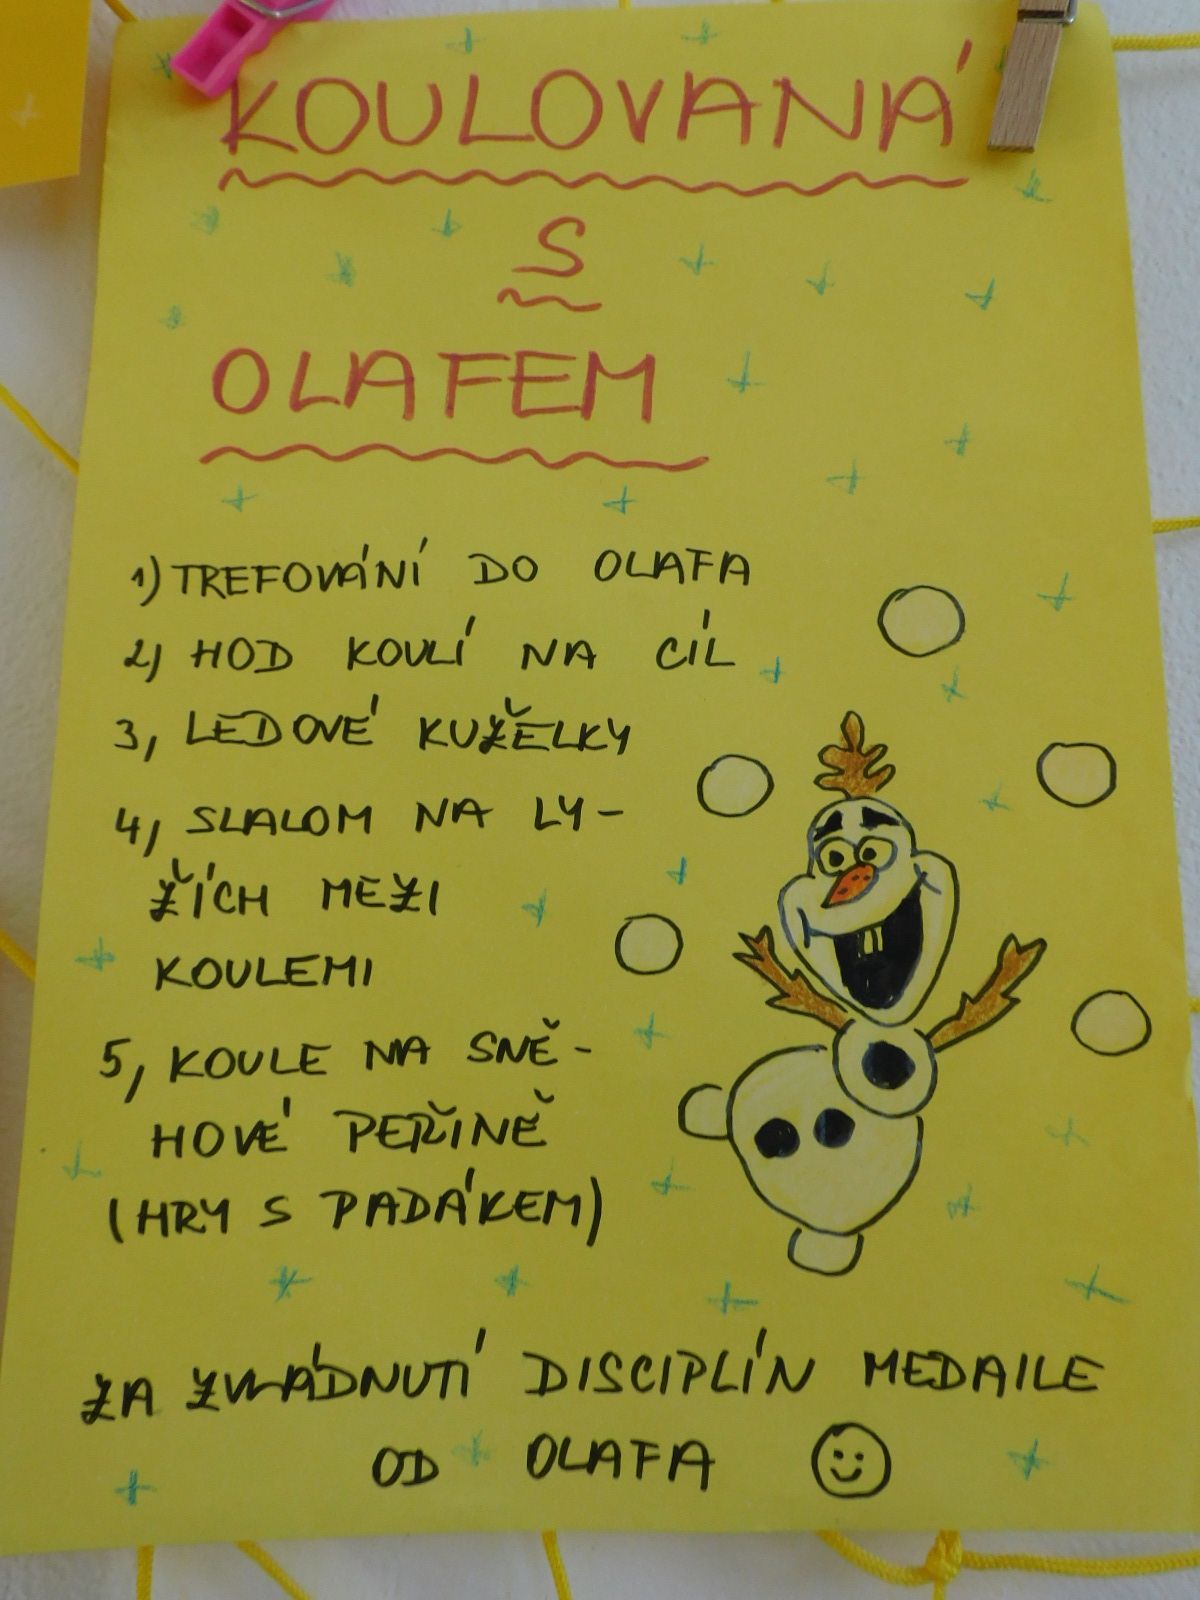 KOULOVANÁ
S
OLAFEM
1) TREFOVÁNÍ DO OLAFA
2, HOD KOULÍ NA CÍL
3, LEDOVÉ KUŽELKY
4, SLALOM NA LY-
ŽÍCH MEZI
KOULEMI
5, KOULE NA SNĚ-
HOVÉ PEŘINĚ
(HRY S PADÁKEM)
ZA ZVLÁDNUTÍ DISCIPLÍN MEDAILE
OD OLAFA